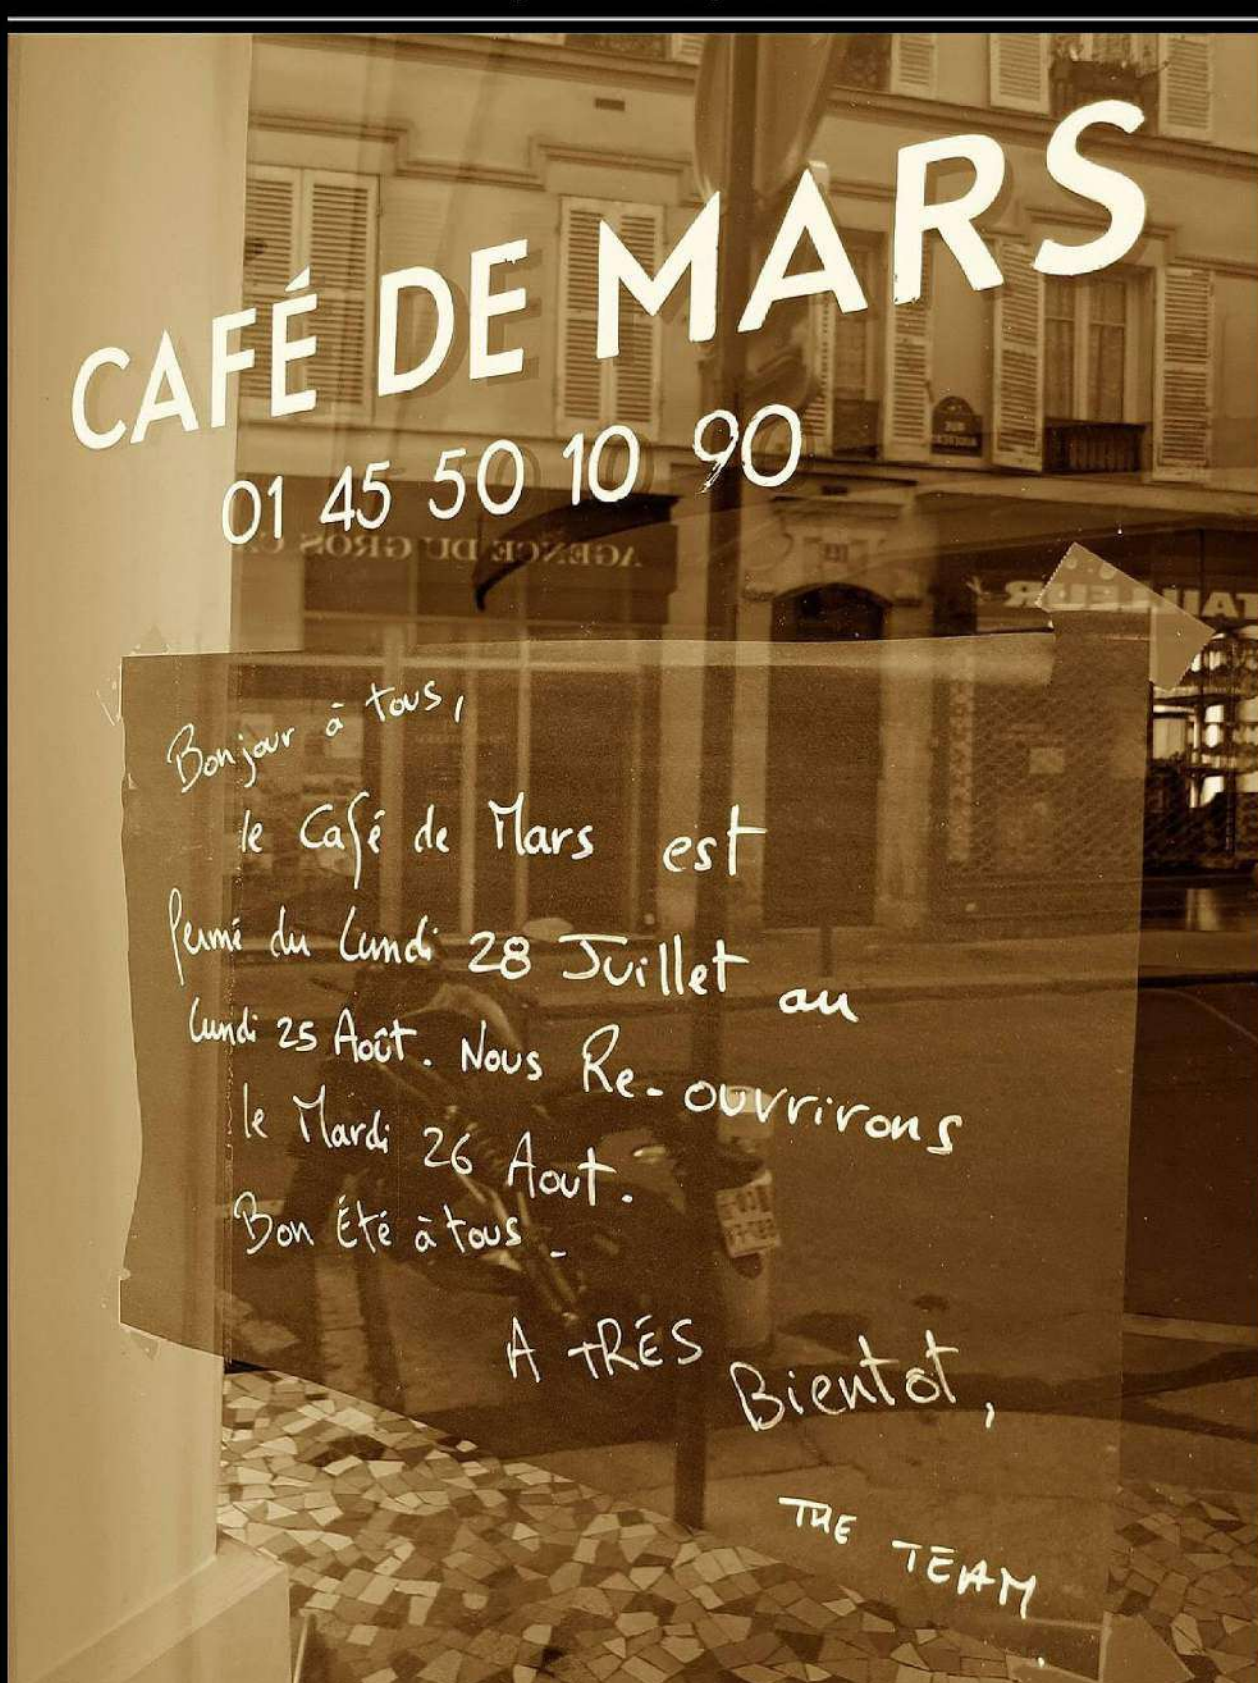 CAFÉ DE MARS
01 45 50 10 90
AGENCE DU GROS
TAILLEUR
RUE
Bonjour à tous,
le Café de Mars est
fermé du lundi 28 Juillet au
lundi 25 Août. Nous Re-ouvrirons
le Mardi 26 Aout.
Bon Été à tous
A TRÉS Bientot,
THE TEAM